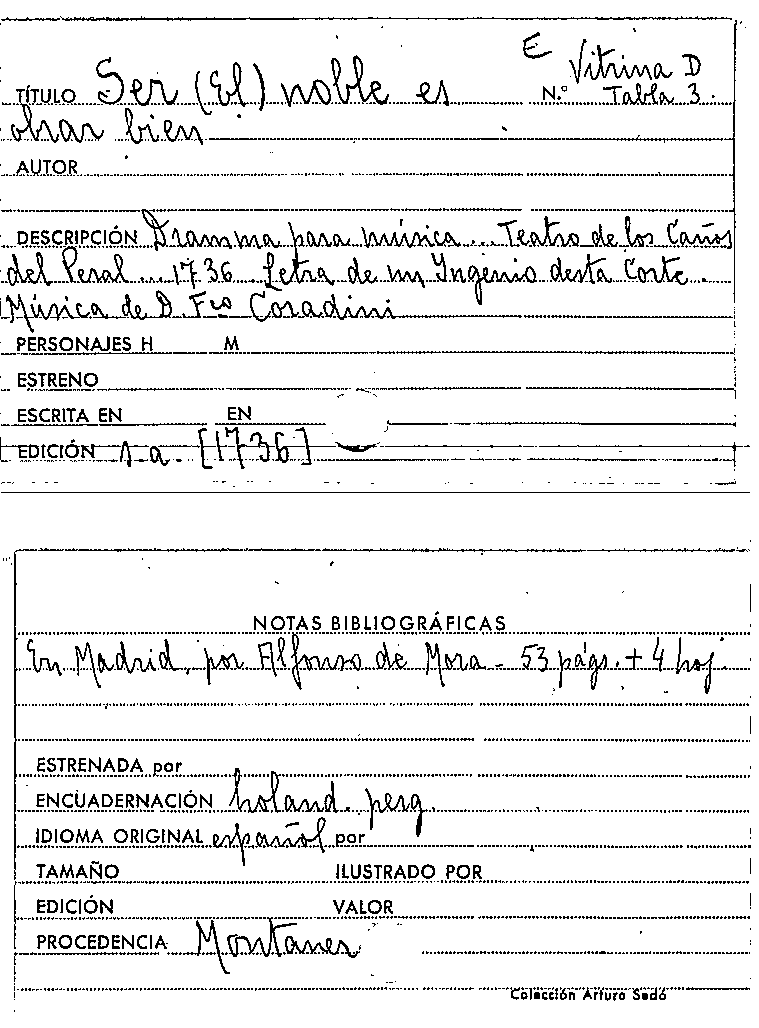 E Vitrina D
TÍTULO Ser (El) noble es N.º Tabla 3.
obrar bien
AUTOR
DESCRIPCIÓN Dramma para música... Teatro de los Caños
del Peral... 1736 Letra de un Ingenio desta Corte.
Música de D. Fco Coradini
PERSONAJES H M
ESTRENO
ESCRITA EN EN
EDICIÓN s.a. [1736]
NOTAS BIBLIOGRÁFICAS
En Madrid, por Alfonso de Mora - 53 págs. + 4 hoj.
ESTRENADA por
ENCUADERNACIÓN holand. perg.
IDIOMA ORIGINAL español por
TAMAÑO ILUSTRADO POR
EDICIÓN VALOR
PROCEDENCIA Montaner
Colección Arturo Sedó